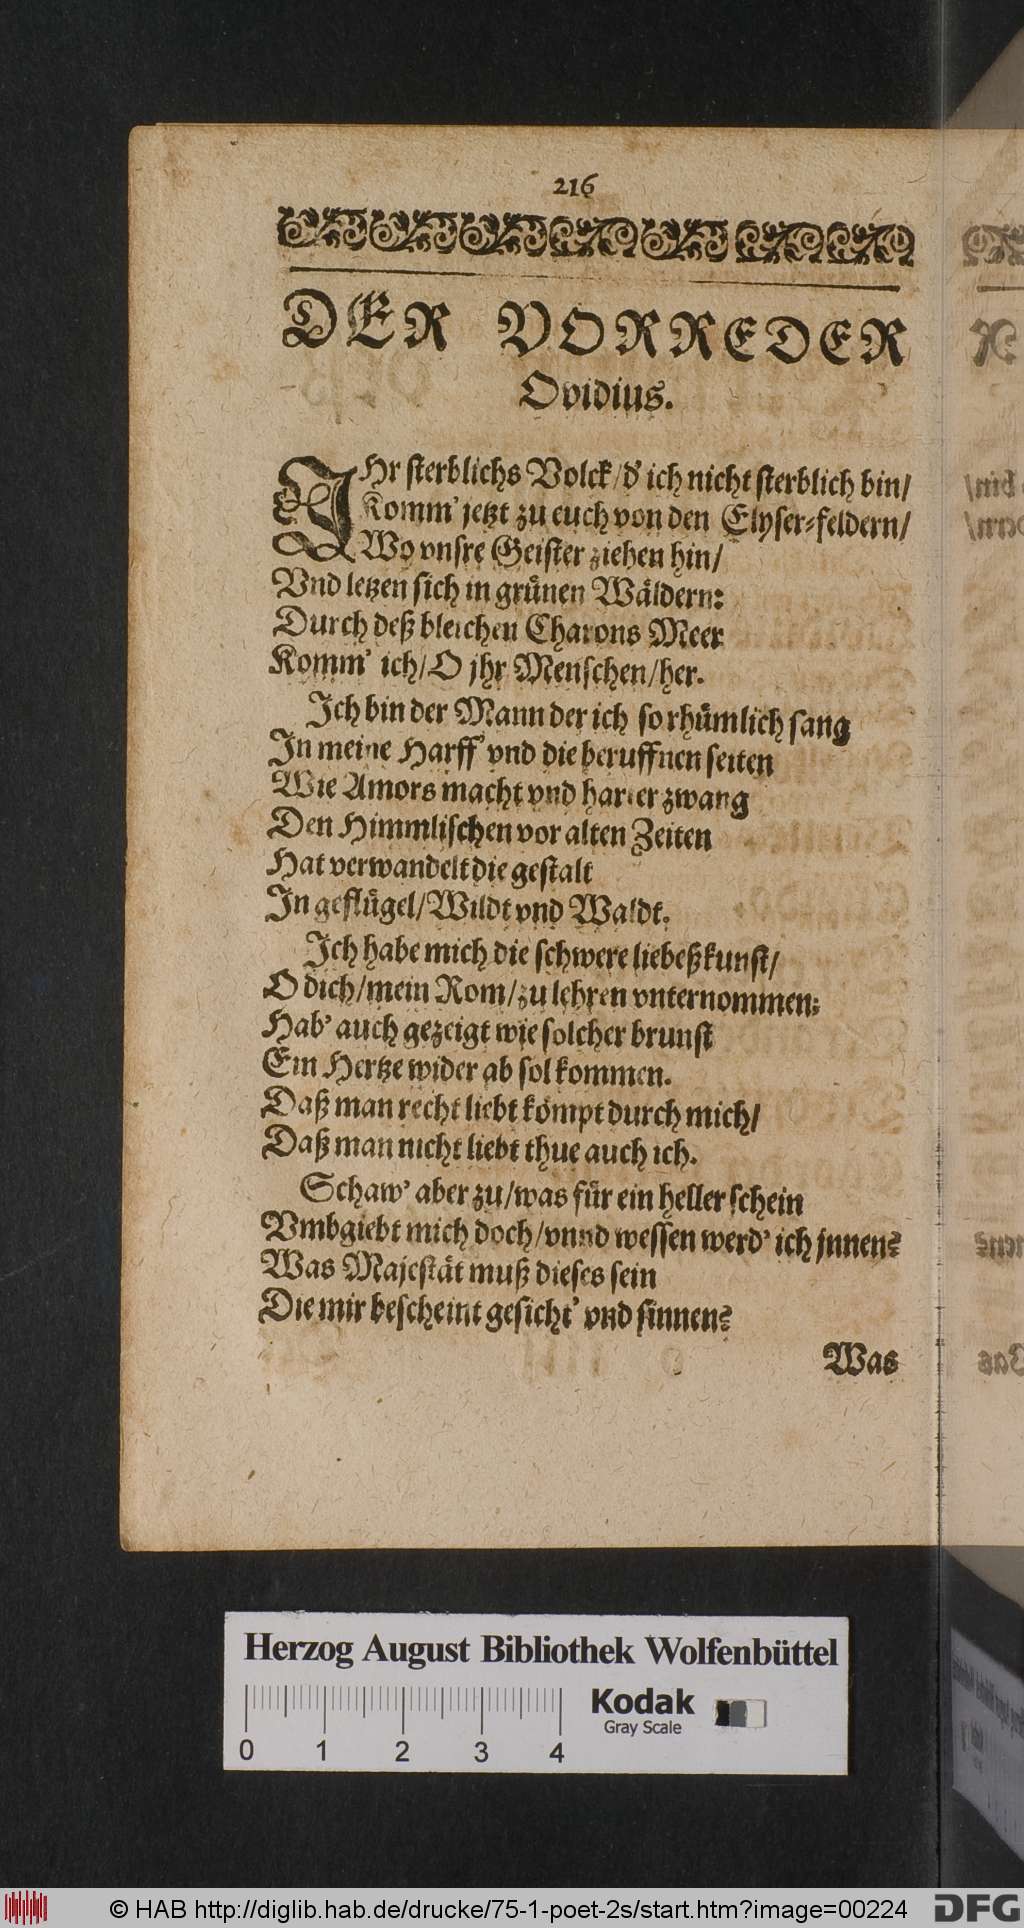 216
DER VORREDER
Ovidius.
IHr sterblichs Volck/d' ich nicht sterblich bin/
Komm' jetzt zu euch von den Elyser-feldern/
Wo vnsre Geister ziehen hin/
Vnd letzen sich in grünen Wäldern:
Durch deß bleichen Charons Meer
Komm' ich/O jhr Menschen/her.
Ich bin der Mann der ich so rhümlich sang
In meine Harff' vnd die beruffnen seiten
Wie Amors macht vnd harter zwang
Den Himmlischen vor alten Zeiten
Hat verwandelt die gestalt
In geflügel/Wildt vnd Waldt.
Ich habe mich die schwere liebeßkunst/
O dich/mein Rom/zu lehren vnternommen:
Hab' auch gezeigt wie solcher brunst
Ein Hertze wider ab sol kommen.
Daß man recht liebt kömpt durch mich/
Daß man nicht liebt thue auch ich.
Schaw' aber zu/was für ein heller schein
Vmbgiebt mich doch/vnnd wessen werd' ich jnnen?
Was Majestät muß dieses sein
Die mir bescheint gesicht' vnd sinnen?
Was
Herzog August Bibliothek Wolfenbüttel
Kodak
Gray Scale
0 1 2 3 4
© HAB http://diglib.hab.de/drucke/75-1-poet-2s/start.htm?image=00224
DFG